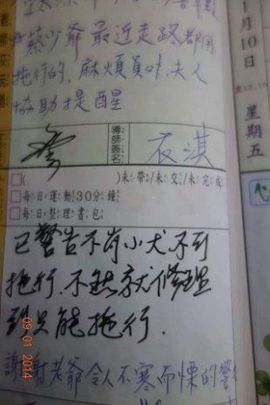 蔡少爺最近走路都用
拖行的,麻煩員外、夫人
協助提醒
導師簽名
衣淇
1月10日
星期五
□( )未帶/未交/未完成
□每日運動30分鐘
□每日整理書包
已警告不肖小犬不可
拖行.不然就修理
到只能拖行.
謝謝老爺令人不寒而慄的警
09/01 2014